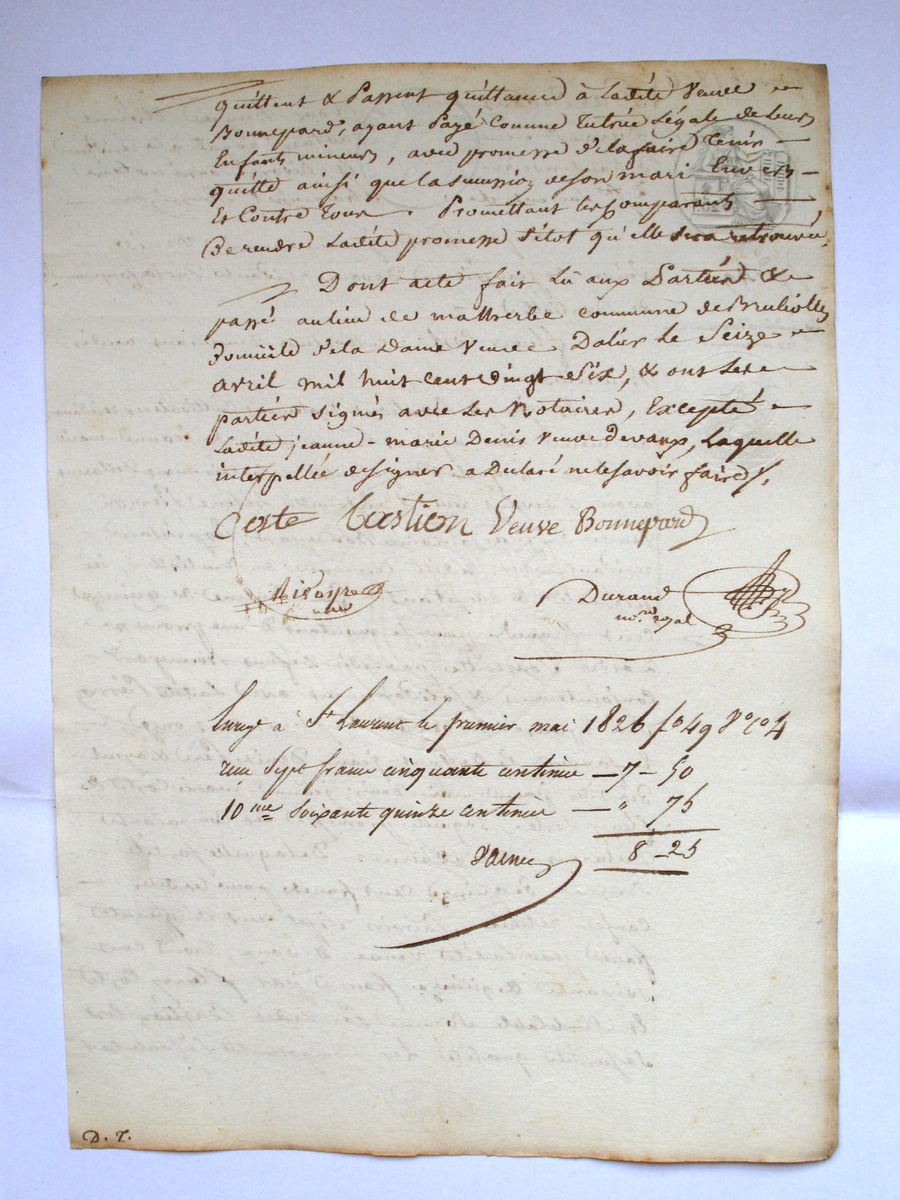 quittent & Passent quittance à Ladite Veuve
Bonnepard, ayant Payé Comme Tutrice Légale de Leurs
Enfants mineurs, avec promesse d'la faire Tenir
quitte ainsi que la succession de son mari Envers
Et Contre Tous. Promettant les Comparants
De rendre Ladite promesse sitot qu'elle sera retrouvée.
Dont acte fait Lû aux Parties &
passé au lieu de malherbe commune de Brulioles
Domicile d'la Dame Veuve Dalier Le Seize
avril mil huit cent vingt Six, & ont Les
parties signés avec Les Notaires, Excepté
Ladite jeanne-marie Denis Veuve Devaux, Laquelle
interpellée de signer a Déclaré ne le savoir faire.
Veuve Bonnepard
Durand
no.re royal
Enreg.é à St Laurent le premier mai 1826 fo 49 Vo Co 4
reçu Sept francs cinquante centimes — 7 - 50
10me soixante quinze centimes — " 75
8 - 25
D. T.